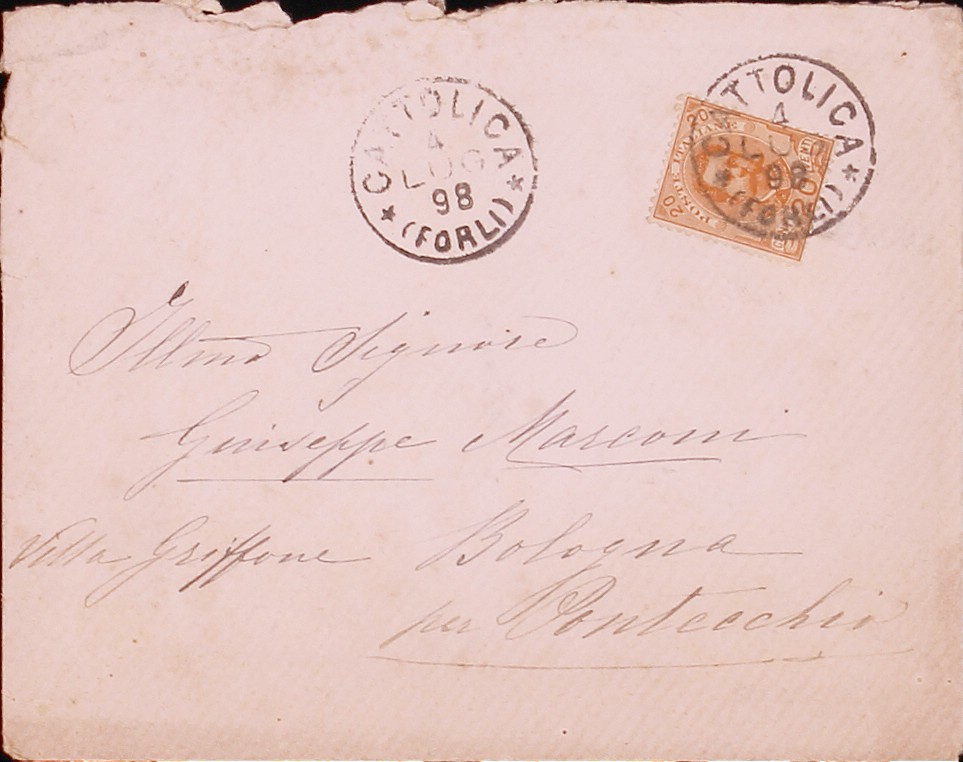 CATTOLICA
4
LUG
98
* (FORLI) *
CATTOLICA
4
LUG
98
* (FORLI) *
20 POSTE ITALIANE 20
Illmo Signore
Giuseppe Marconi
Villa Griffone Bologna
per Pontecchio